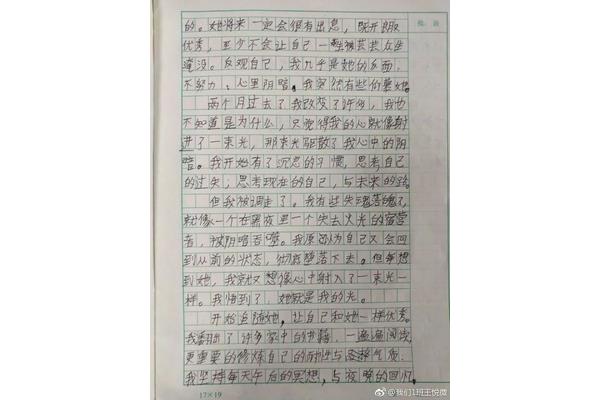 的。她将来一定会很有出息，既开朗
优秀，至少不会让自己一生被芸芸众生
淹没。反观自己，我几乎是她的反面，
不努力，心里阴暗。我突然有些仰慕她。
两个月过去了我改变了许多，我也
不知道是为什么，只觉得我的心就像射
进了一束光，那束光驱散了我心中的阴
暗。我开始有了沉思的习惯，思考自己
的过失；思考现在的自己，与未来的路。
但我被调走了。我有些失魂落魄了，
就像一个在黑夜里一个失去火光的宿营
者，被阴暗吞噬。我原以为自己又会回
到从前的状态，彻底堕落下去。但每想
到她，我就又想像心中射入了一束光一
样。我悟到了，她就是我的光。
开始追随她，让自己和她一样优秀。
我翻出了许多家中的书籍，一遍遍阅读，
更重要的修炼自己的耐性与
我坚持每天午后的冥想，与夜晚的回忆，
17×19
批 语
@我们1班王悦微